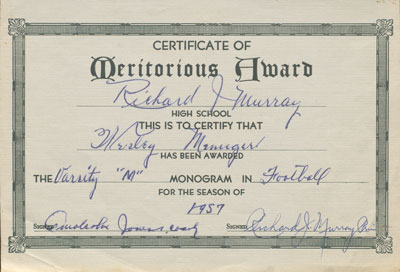 CERTIFICATE OF
Meritorious Award
Richard J Murray
HIGH SCHOOL
THIS IS TO CERTIFY THAT
Wesley
HAS BEEN AWARDED
THE Varsity "M" MONOGRAM IN Football
FOR THE SEASON OF
1957
SIGNED Jones, coach SIGNED Richard J. Murray